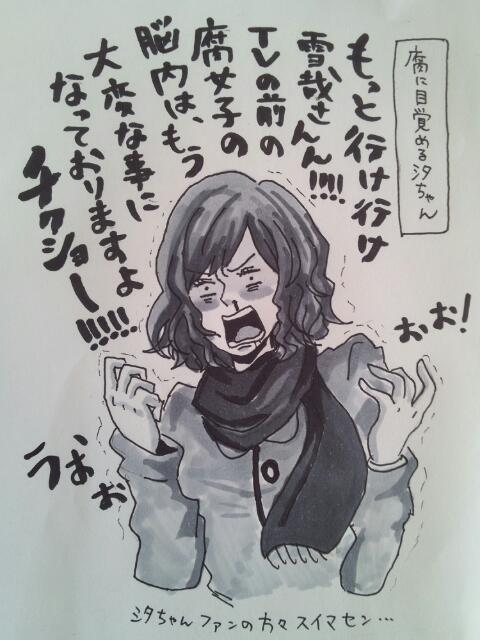 腐に目覚める汐ちゃん
もっと行け行け
雪哉さんん!!!!
TVの前の
腐女子の
脳内は、もう
大変な事に
なっておりますよ
チクショー!!!!!
おお!
うおぉ
汐ちゃんファンの方々スイマセン…